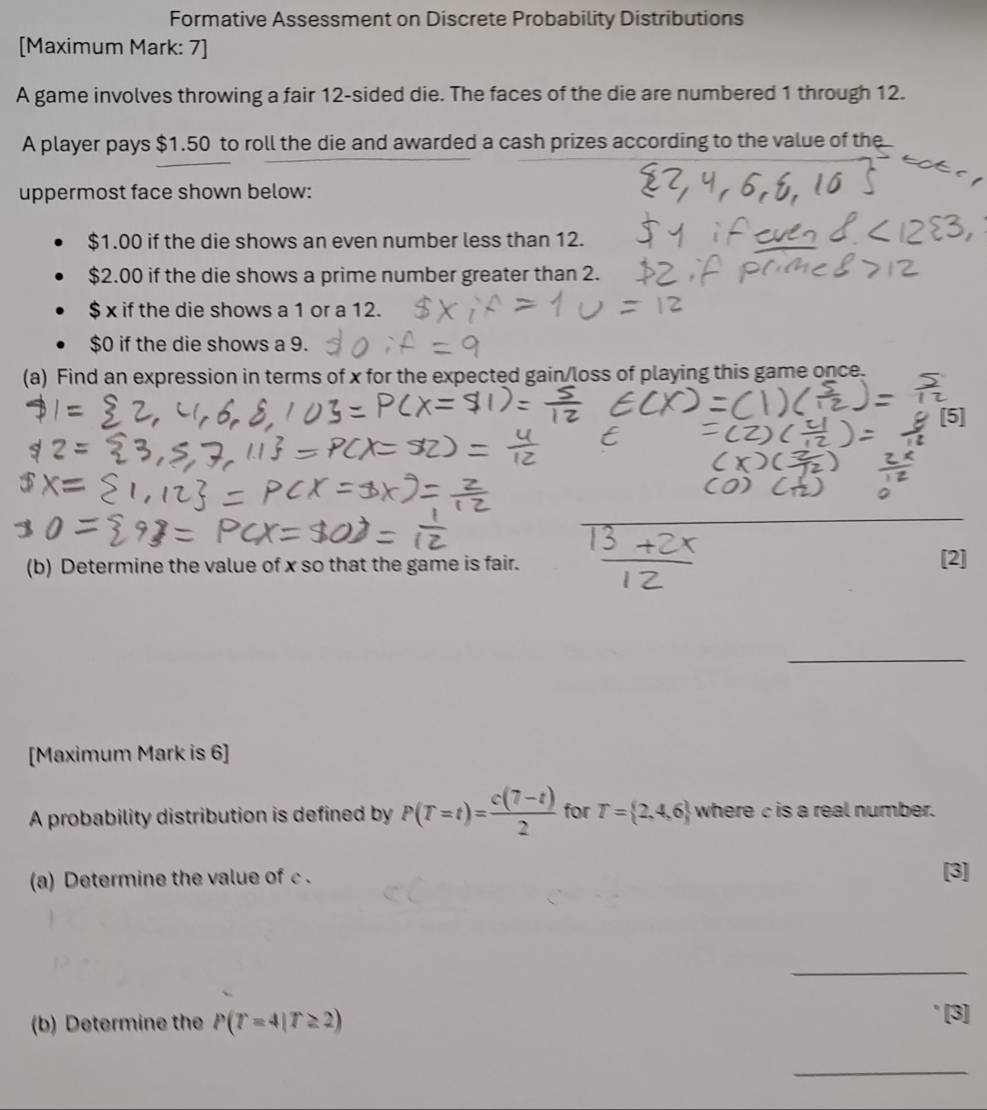 Formative Assessment on Discrete Probability Distributions
[Maximum Mark: 7]
A game involves throwing a fair 12-sided die. The faces of the die are numbered 1 through 12.
A player pays $1.50 to roll the die and awarded a cash prizes according to the value of the
uppermost face shown below:
{2, 4, 6, 8, 10}
• $1.00 if the die shows an even number less than 12.
$1 if even & < 12 {3,
• $2.00 if the die shows a prime number greater than 2.
$2 if prime & > 12
• $ x if the die shows a 1 or a 12.
$x if = 1 ∪ = 12
• $0 if the die shows a 9.
$0 if = 9
(a) Find an expression in terms of x for the expected gain/loss of playing this game once.
[5]
$1 = {2, 4, 6, 8, 10} = P(X = $1) = 5/12 E(X) = (1)(5/12) = 5/12
$2 = {3, 5, 7, 11} = P(X = $2) = 4/12 E = (2)(4/12) = 8/12
$X = {1, 12} = P(X = $x) = 2/12 (x)(2/12) 2x/12
$0 = {9} = P(X = $0) = 1/12 (0)(1/12) 0
13 + 2x / 12
(b) Determine the value of x so that the game is fair.
[2]
[Maximum Mark is 6]
A probability distribution is defined by P(T = t) = c(7 - t)/2 for T = {2, 4, 6} where c is a real number.
(a) Determine the value of c.
[3]
(b) Determine the P(T = 4 | T ≥ 2)
[3]